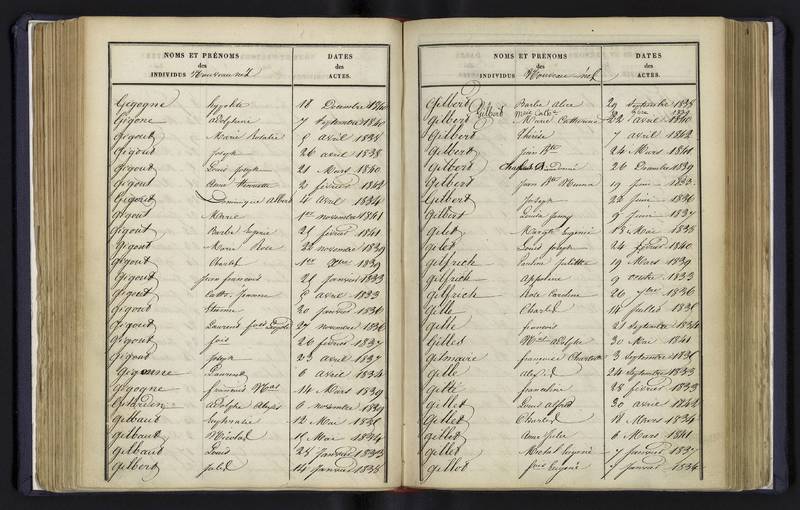 NOMS ET PRÉNOMS
des
INDIVIDUS Nouveau né
DATES
des
ACTES.
Gigogne hypolite 18 Decembre 1840
Gigone adolphine 7 Septembre 1840
Gigout Marie Rosalie 8 avril 1838
Gigout Joseph 26 avril 1838
Gigout Louis Joseph 21 Mars 1840
Gigout Anne Henriette 2 février 1842
Gigout Dominique Albert 4 avril 1834
Gigout Marie 1er novembre 1841
Gigout Barbe Eugénie 21 février 1841
Gigout Marie Rose 20 novembre 1839
Gigout Charles 1er 1839
Gigout Jean francois 21 Janvier 1833
Gigout Cathe. Jeanne 8 avril 1833
Gigout Etienne 20 Janvier 1836
Gigout Laurent fois Léopold 27 novembre 1836
Gigout fois 26 février 1837
Gigout Joseph 23 avril 1837
Gigounne Laurent 6 avril 1834
Gigogne francois Nas 14 Mars 1839
Gilardin adolphe 6 novembre 1839
Gilbaut Euphrasie 12 Mai 1836
Gilbaut Nicolas 1834
Gilbaut Louis 28 Janvier 1833
Gilbert Jules 14 Janvier 1838
NOMS ET PRÉNOMS
des
INDIVIDUS Nouveau né
DATES
des
ACTES.
Gilbert Barbe Alice 29 Septembre 1838
Gilbert Mie Cathe
Gilbert Marie Catherine 22 avril 1840
Gilbert Thérèse 7 avril 1842
Gilbert Jean Bte 24 Mars 1841
Gilbert 26 Decembre 1839
Gilbert Jean Bte 19 Juin 1833
Gilbert Joseph 22 Juin 1836
Gilbert Louise fanny 9 Juin 1837
Gilet Margte Eugenie 18 Mai 1838
Gilet Louis Joseph 24 février 1840
Gilfrich Pauline Juliette 19 Mars 1839
Gilfrich appoline 9 octobre 1833
Gilfrich Rose Caroline 26 7bre 1836
Gille Charles 14 Juillet 1836
Gille francois 21 Septembre 1834
Gilles adolphe 30 Mai 1841
Gilmaire francoise Charlotte 3 Septembre 1836
Gille 24 Septembre 1833
Gille francoise 28 février 1833
Gillet Louis alfred 30 avril 1842
Gillet Charles 18 Mars 1834
Gillet Anne Julie 6 Mars 1841
Gillet Michel Eugène 7 Janvier 1837
Gillot fois Eugène Janvier 1834